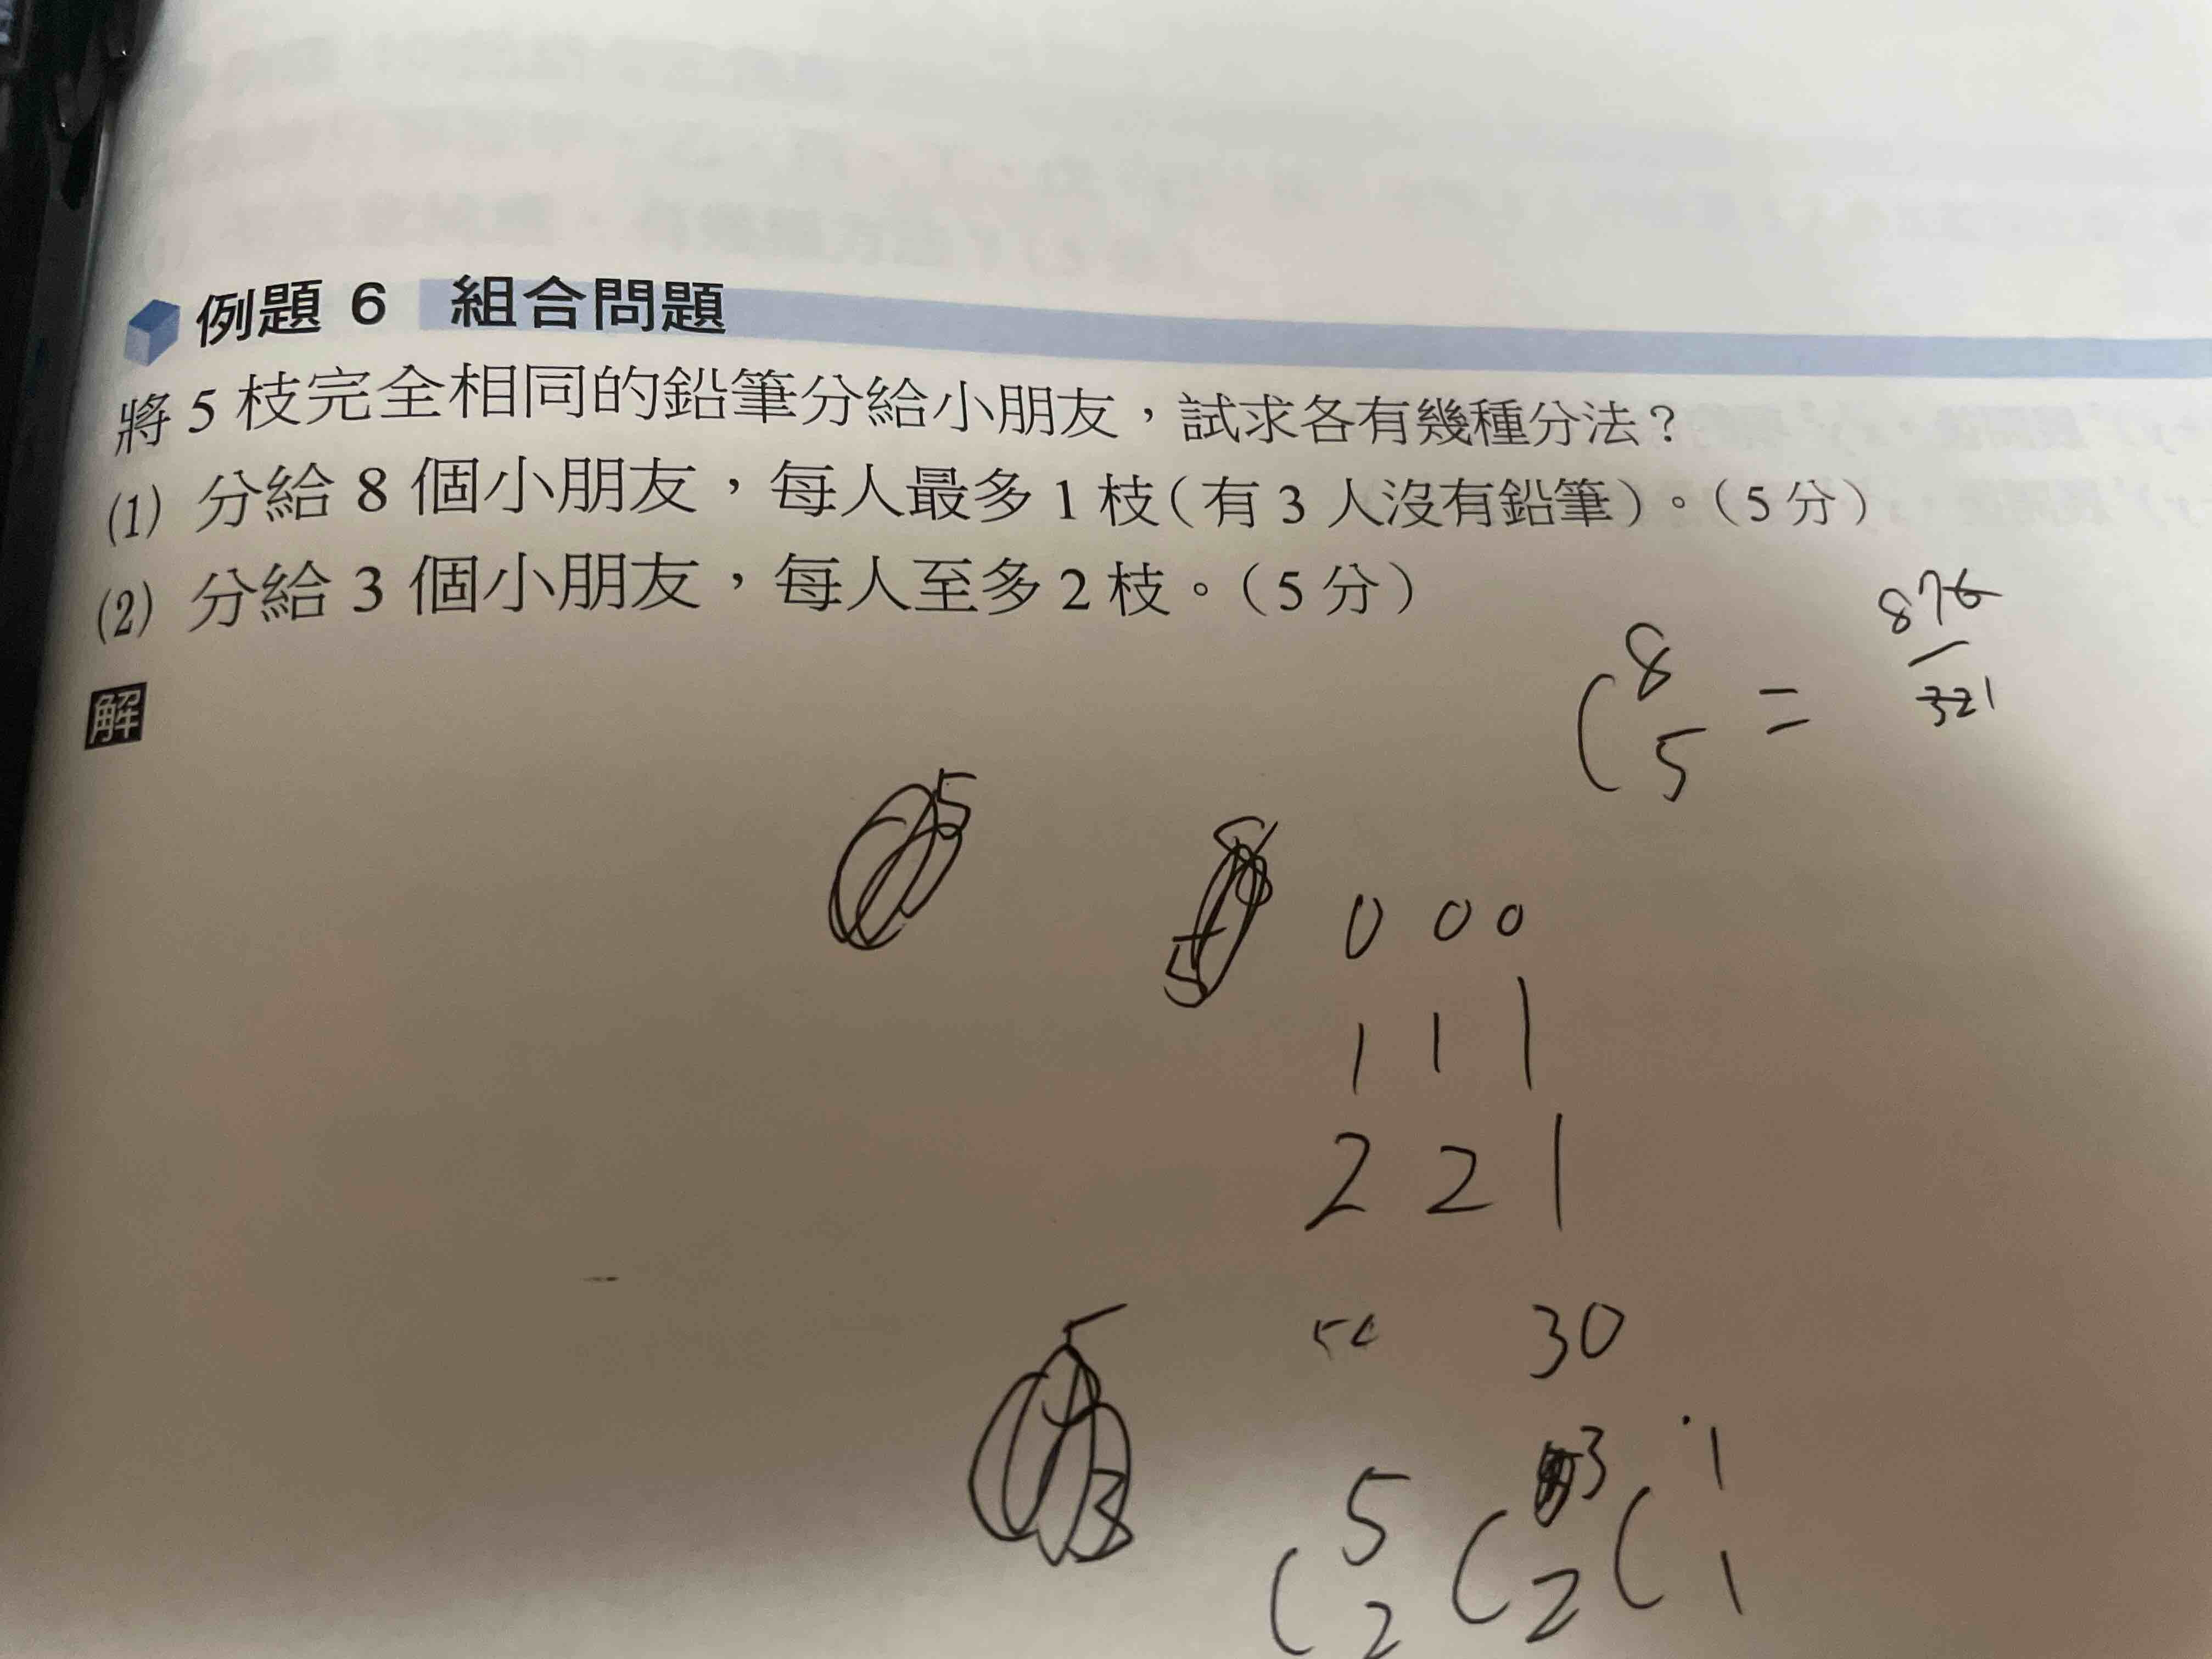 例題 6 組合問題
將 5 枝完全相同的鉛筆分給小朋友，試求各有幾種分法？
(1) 分給 8 個小朋友，每人最多 1 枝（有 3 人沒有鉛筆）。（5 分）
(2) 分給 3 個小朋友，每人至多 2 枝。（5 分）
解
C 8 5 = 876 / 321
0 0 0
1 1 1
2 2 1
30
C 5 2 C 3 2 C 1 1